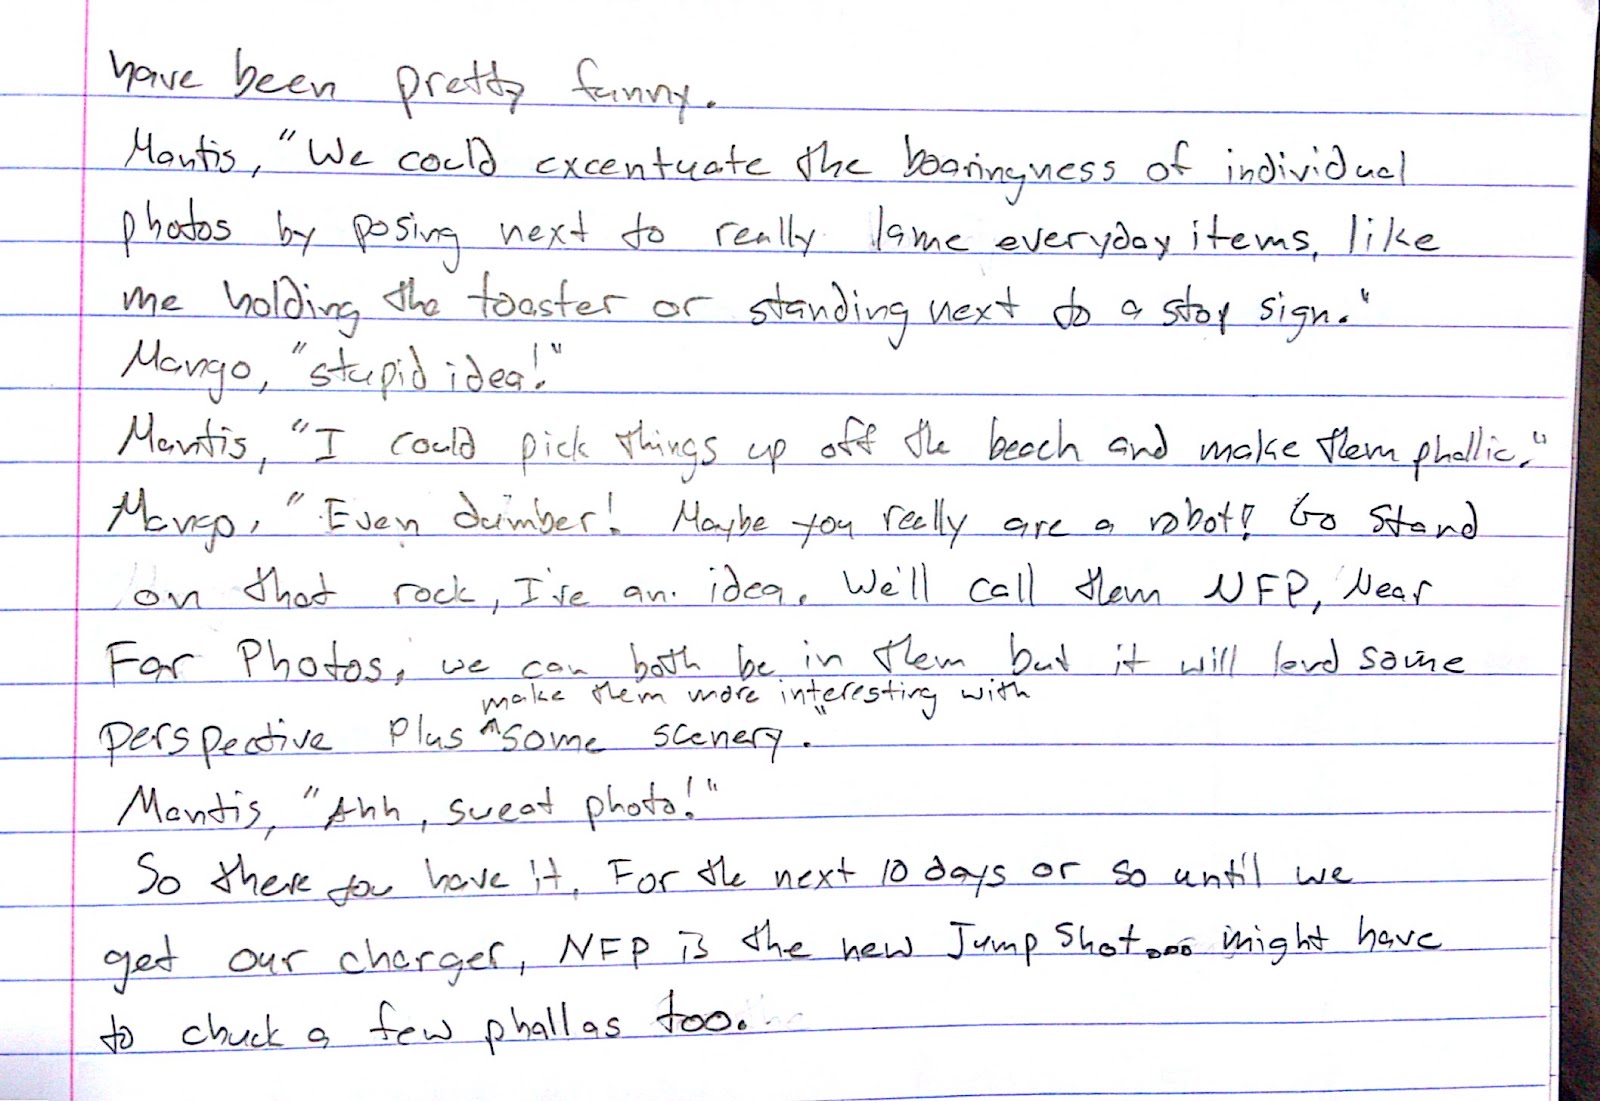 have been pretty funny.
Mantis, "We could excentuate the boaringness of individual
photos by posing next to really lame everyday items, like
me holding the toaster or standing next to a stop sign."
Mango, "stupid idea!"
Mantis, "I could pick things up off the beach and make them phallic."
Mango, "Even dumber! Maybe you really are a robot! Go stand
on that rock, I've an idea. We'll call them NFP, Near
Far Photos, we can both be in them but it will lend some
make them more interesting with
perspective plus ^some scenery."
Mantis, "Ahh, sweat photo!"
So there you have it. For the next 10 days or so until we
get our charger, NFP is the new Jump Shot... might have
to chuck a few phallas too.